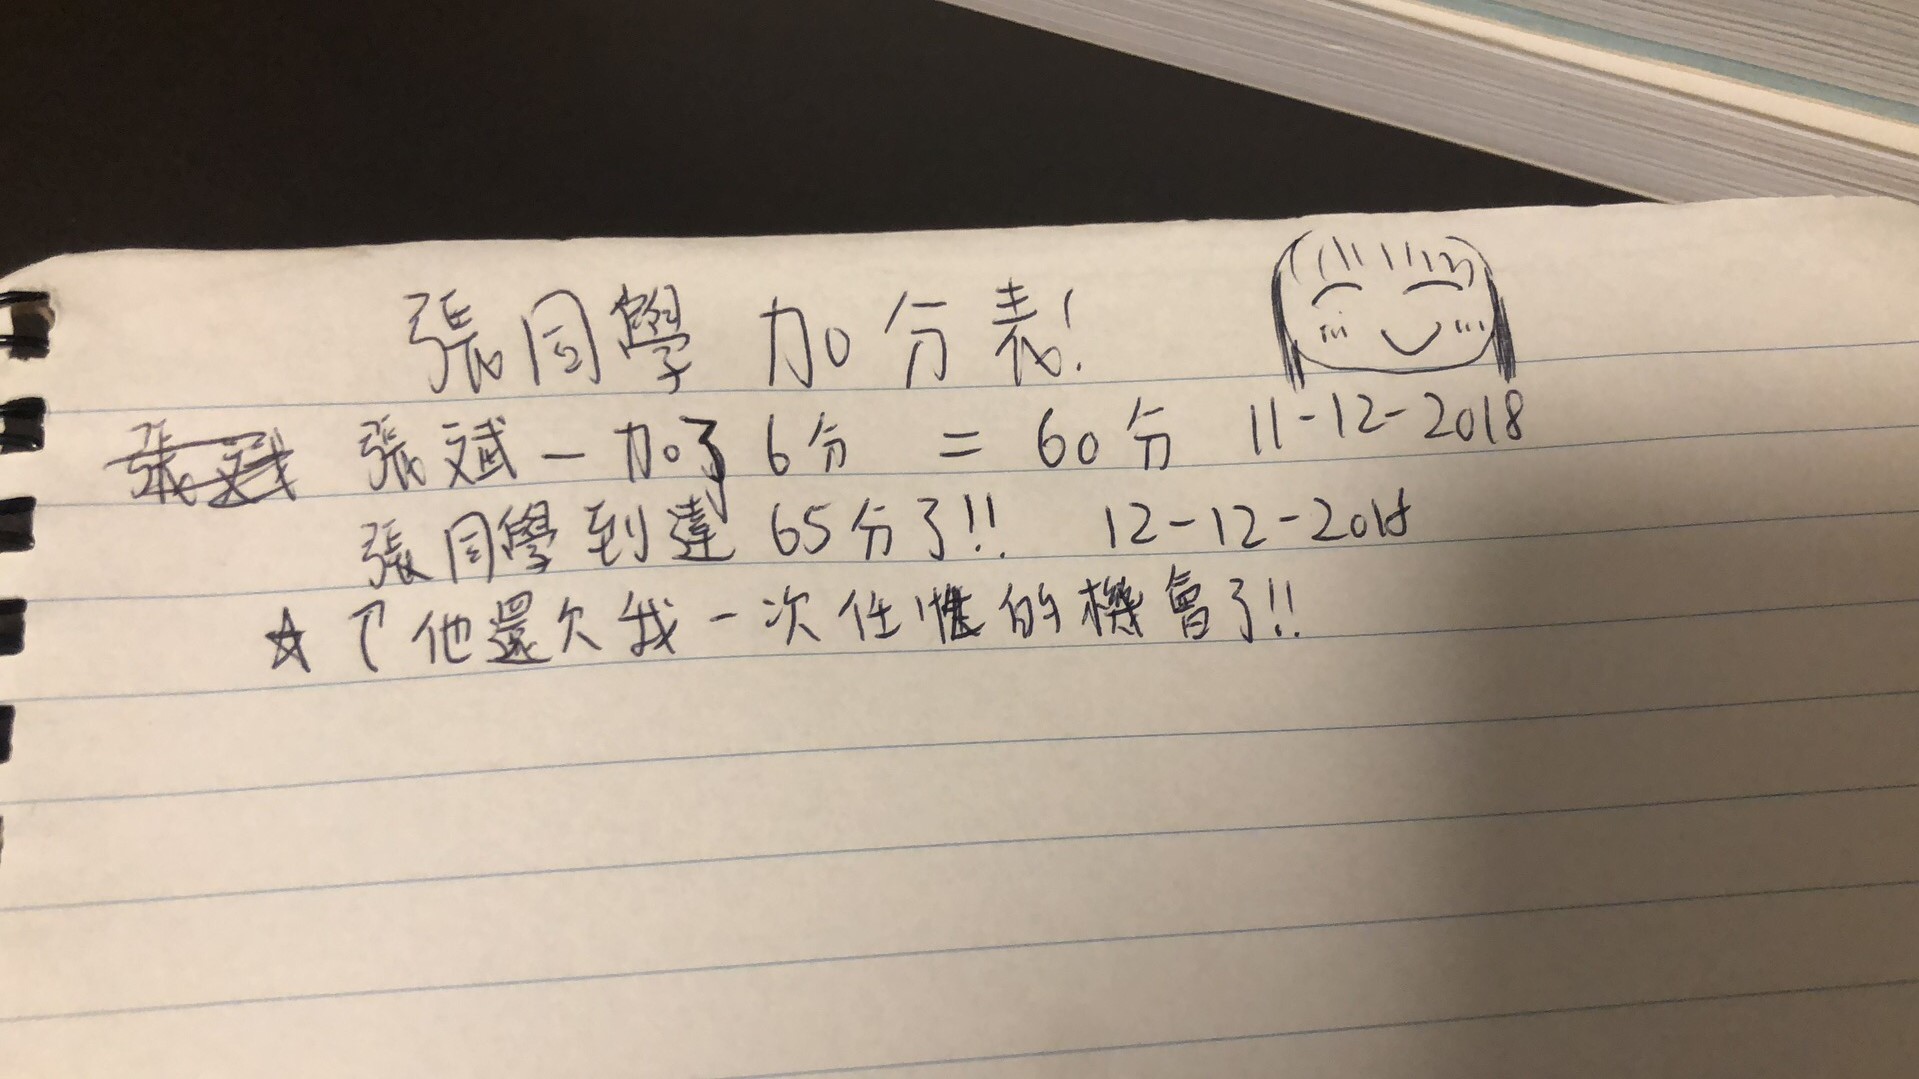 張同學 加分表!
張斌 — 加了 6分 = 60分 11-12-2018
張同學到達 65分了!! 12-12-2018
☆ ↑他還欠我一次任性的機會了!!